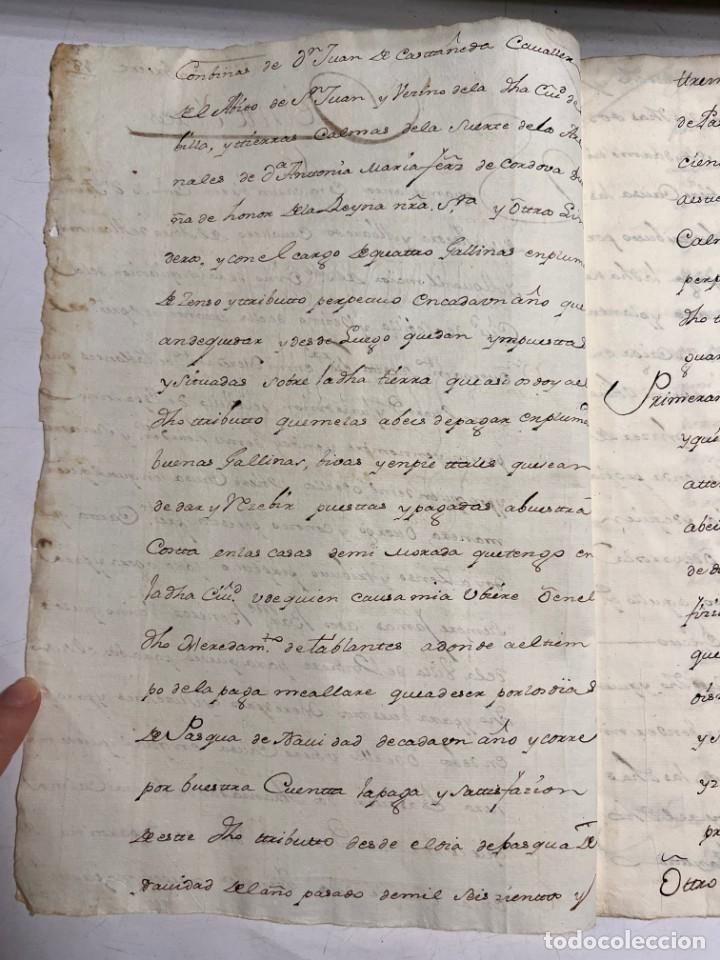 Conbinas de Dn Juan de Castañeda Cavallero
del Abito de Sn Juan y Vezino de la dha Ciud de
billa, y ttierras Calmas de la Suerte de los Are
nales de Da Antonia Maria ferz de Cordova Due
ña de honor de la Reyna nra Sra y Ottro Lin
dero, y con el cargo de quattro Gallinas en pluma
de Zenso y ttributto perpetuo en cada un año que
an de quedar y desde Luego quedan ympuesttas
y Situadas sobre la dha tierra que asi os doy a el
dho ttributto que me las abeis de pagar en pluma
buenas Gallinas, bibas y en pie ttales que sean
de dar y Rezibir puesttas y pagadas a buesttra
Costta en las casas de mi Morada que tengo en
la dha Ciud, u de quien causa mia Ubiere O en el
dho Heredamto de tablantes a donde a el tiem
po de la paga me allare que a de ser por los dias
de Pasqua de Navidad de cada un año y corre
por buesttra Cuentta la paga y Sattisfazion
de este dho ttributto desde el dia de pasqua de
Navidad del año pasado de mil Seiszienttos y
ttrem
de Pas
cien
Calm
perp
dho tt
quar
Primeram
y qu
atten
abei
de d
firi
que
dis
y s
y r
pr
Ottro
todocoleccion
todocoleccion.net